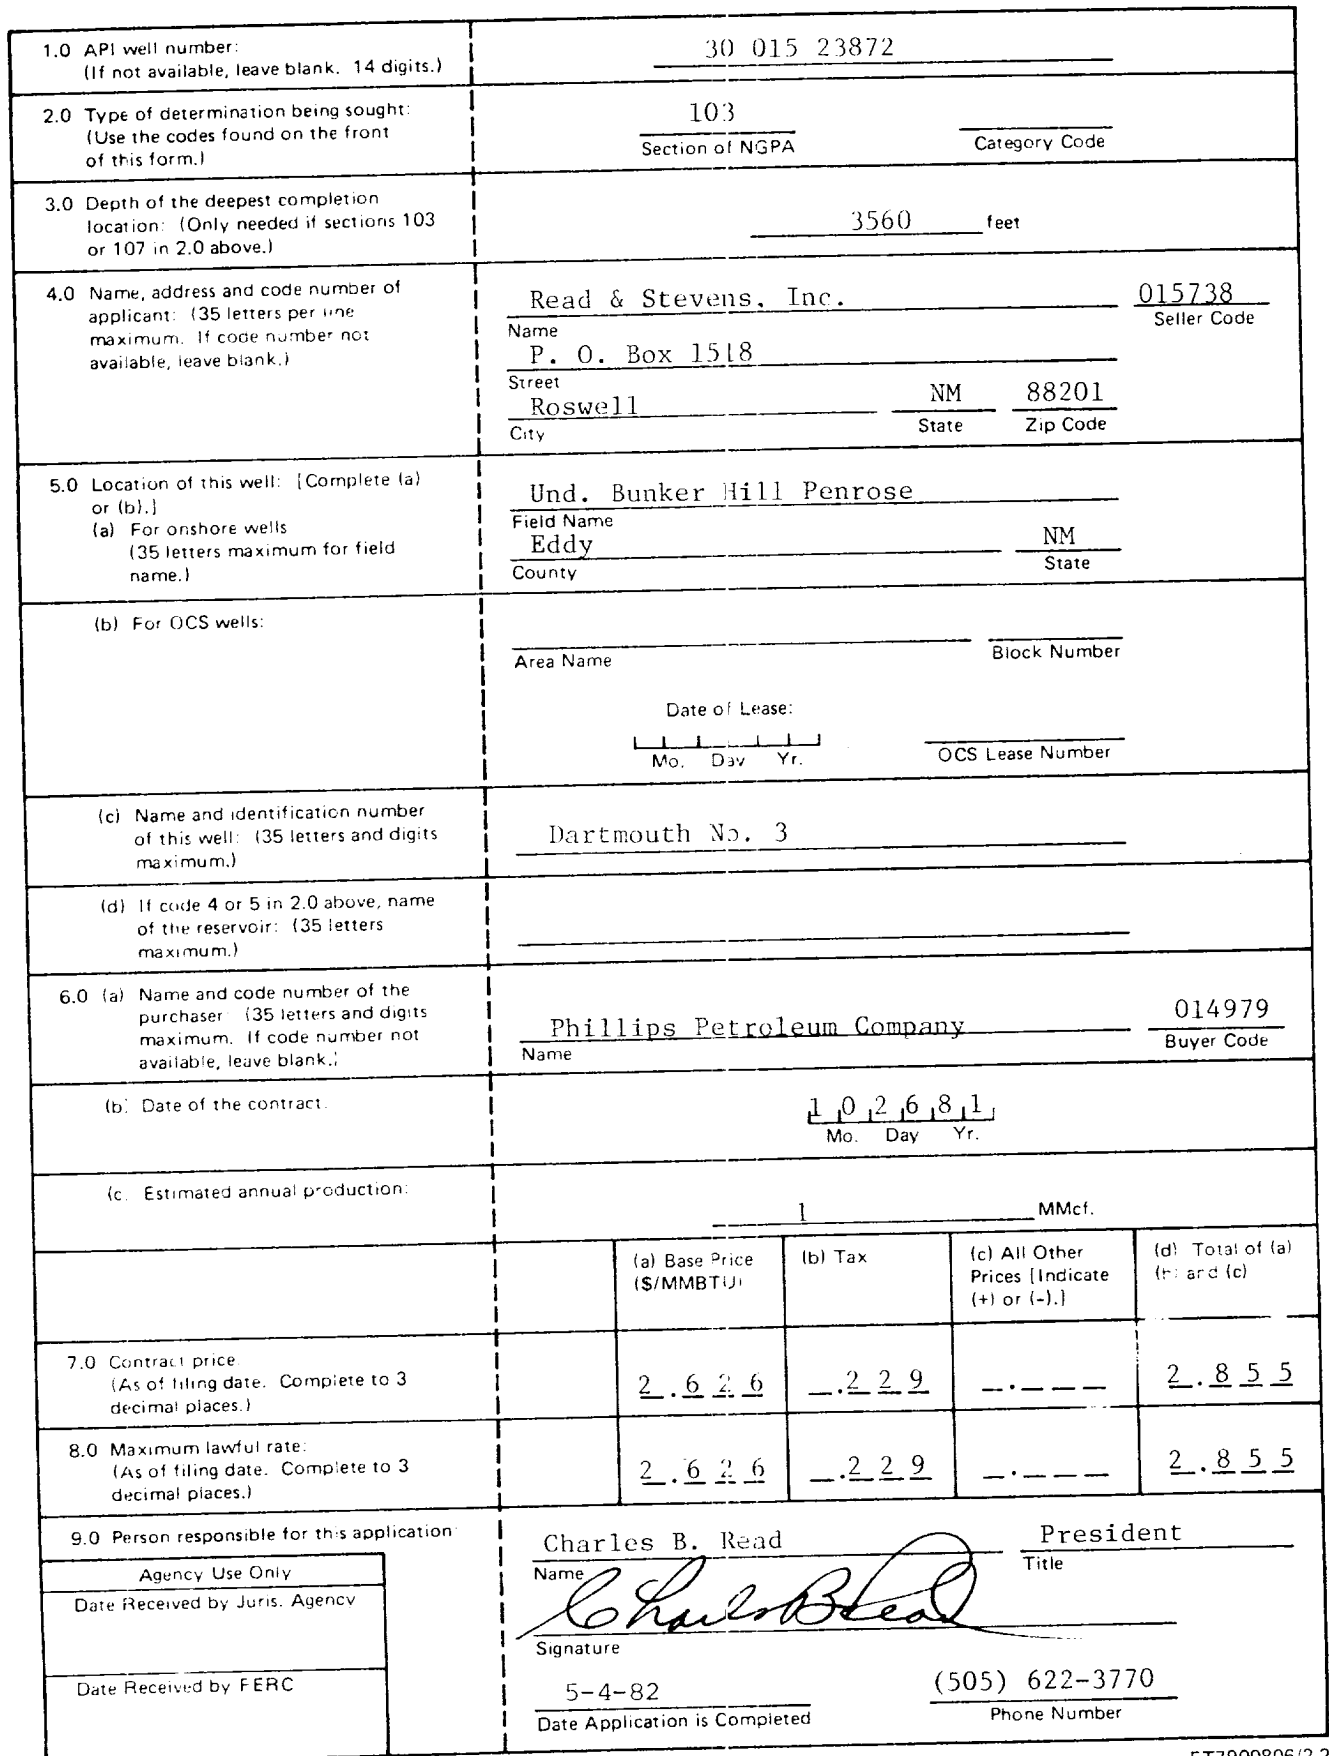 1.0 API well number:
(If not available, leave blank. 14 digits.)
30 015 23872
2.0 Type of determination being sought:
(Use the codes found on the front
of this form.)
103
Section of NGPA
Category Code
3.0 Depth of the deepest completion
location: (Only needed if sections 103
or 107 in 2.0 above.)
3560 feet
4.0 Name, address and code number of
applicant: (35 letters per line
maximum. If code number not
available, leave blank.)
Read & Stevens, Inc.
Name
015738
Seller Code
P. O. Box 1518
Street
Roswell
City
NM
State
88201
Zip Code
5.0 Location of this well: [Complete (a)
or (b).]
(a) For onshore wells
(35 letters maximum for field
name.)
Und. Bunker Hill Penrose
Field Name
Eddy
County
NM
State
(b) For OCS wells:
Area Name
Block Number
Date of Lease:
Mo. Day Yr.
OCS Lease Number
(c) Name and identification number
of this well: (35 letters and digits
maximum.)
Dartmouth No. 3
(d) If code 4 or 5 in 2.0 above, name
of the reservoir: (35 letters
maximum.)
6.0 (a) Name and code number of the
purchaser: (35 letters and digits
maximum. If code number not
available, leave blank.)
Phillips Petroleum Company
Name
014979
Buyer Code
(b) Date of the contract:
1 0 2 6 8 1
Mo. Day Yr.
(c) Estimated annual production:
1 MMcf.
(a) Base Price
($/MMBTU)
(b) Tax
(c) All Other
Prices [Indicate
(+) or (-).]
(d) Total of (a)
(b) and (c)
7.0 Contract price:
(As of filing date. Complete to 3
decimal places.)
2 . 6 2 6
. 2 2 9
2 . 8 5 5
8.0 Maximum lawful rate:
(As of filing date. Complete to 3
decimal places.)
2 . 6 2 6
. 2 2 9
2 . 8 5 5
9.0 Person responsible for this application:
Agency Use Only
Date Received by Juris. Agency
Date Received by FERC
Charles B. Read
Name
President
Title
Charles B Read
Signature
5-4-82
Date Application is Completed
(505) 622-3770
Phone Number